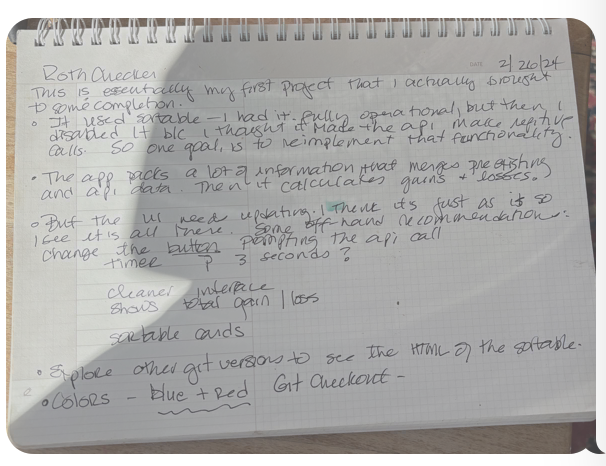 DATE 2/26/24
Roth Checker
This is essentially my first project that I actually brought
to some completion.
• It used sortable — I had it fully operational, but then I
disabled it b/c I thought it made the api make repitive
calls. So one goal, is to reimplement that functionality.
• The app packs a lot of information that merges pre existing
and api data. Then it calculates gains + losses.
• But the UI needs updating. I think it's just as is so
I see it is all there. Some off hand recommendations:
change the button prompting the api call
timer 3 seconds?
cleaner interface
shows total gain / loss
sortable cards
• Explore other git versions to see the HTML of the sortable.
• Colors - blue + red Git Checkout -